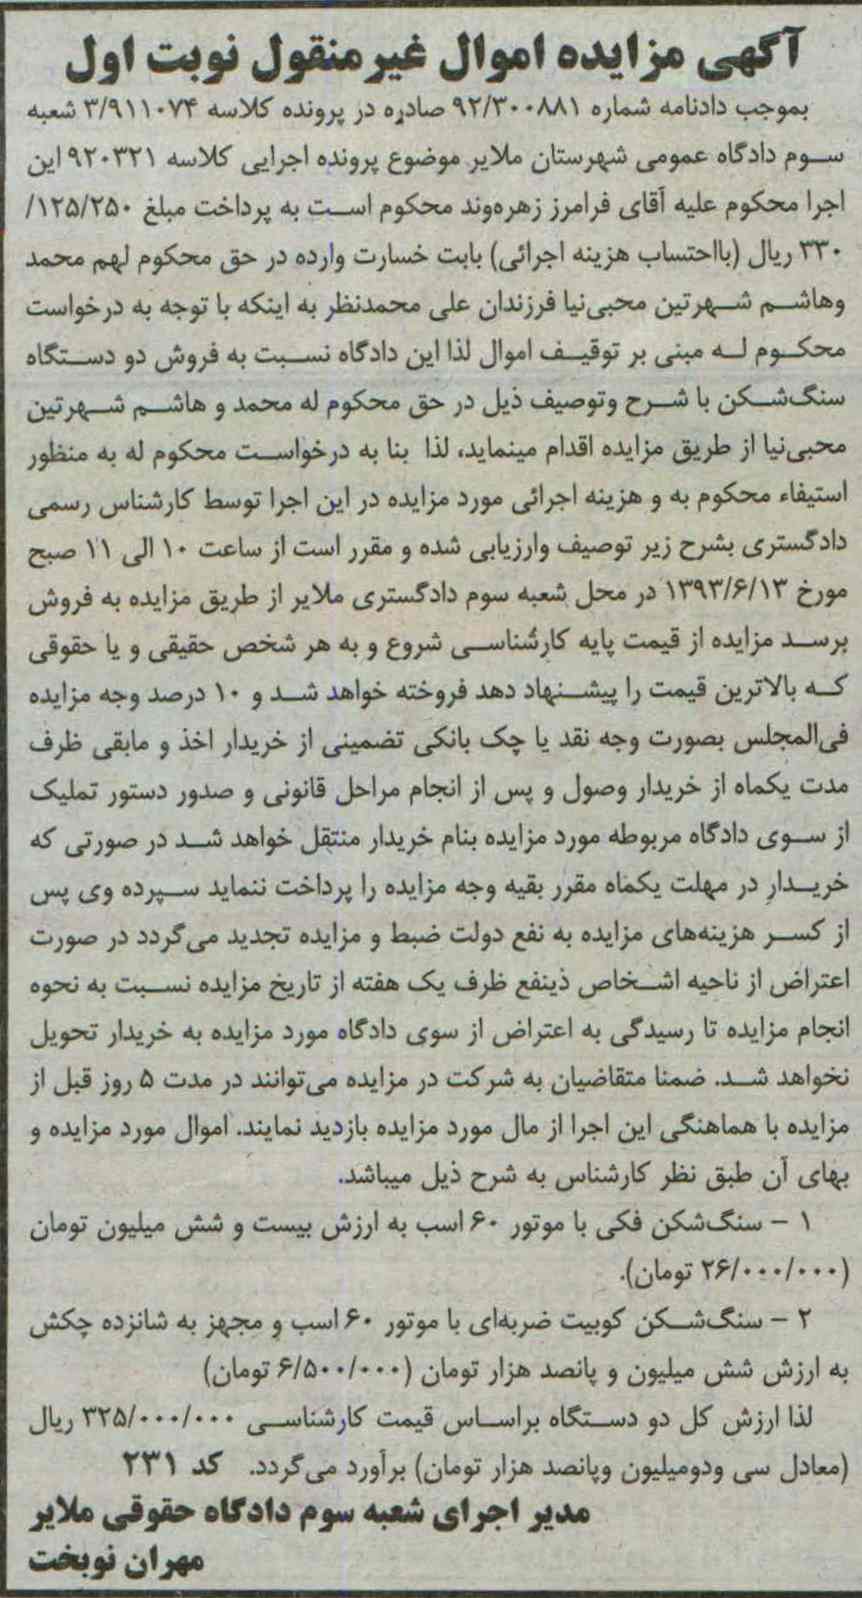 آگهی مزایده اموال غیرمنقول نوبت اول
بموجب دادنامه شماره ۹۲/۳۰۰۸۸۱ صادره در پرونده کلاسه ۳/۹۱۱۰۷۴ شعبه
سوم دادگاه عمومی شهرستان ملایر موضوع پرونده اجرایی کلاسه ۹۲۰۳۲۱ این
اجرا محکوم علیه آقای فرامرز زهره‌وند محکوم است به پرداخت مبلغ ۱۲۵/۲۵۰/
۳۳۰ ریال (بااحتساب هزینه اجرائی) بابت خسارت وارده در حق محکوم لهم محمد
وهاشم شهرتین محبی‌نیا فرزندان علی محمدنظر به اینکه با توجه به درخواست
محکوم له مبنی بر توقیف اموال لذا این دادگاه نسبت به فروش دو دستگاه
سنگ‌شکن با شرح وتوصیف ذیل در حق محکوم له محمد و هاشم شهرتین
محبی‌نیا از طریق مزایده اقدام مینماید، لذا بنا به درخواست محکوم له به منظور
استیفاء محکوم به و هزینه اجرائی مورد مزایده در این اجرا توسط کارشناس رسمی
دادگستری بشرح زیر توصیف وارزیابی شده و مقرر است از ساعت ۱۰ الی ۱۱ صبح
مورخ ۱۳۹۳/۶/۱۳ در محل شعبه سوم دادگستری ملایر از طریق مزایده به فروش
برسد مزایده از قیمت پایه کارشناسی شروع و به هر شخص حقیقی و یا حقوقی
که بالاترین قیمت را پیشنهاد دهد فروخته خواهد شد و ۱۰ درصد وجه مزایده
فی‌المجلس بصورت وجه نقد یا چک بانکی تضمینی از خریدار اخذ و مابقی ظرف
مدت یکماه از خریدار وصول و پس از انجام مراحل قانونی و صدور دستور تملیک
از سوی دادگاه مربوطه مورد مزایده بنام خریدار منتقل خواهد شد در صورتی که
خریدار در مهلت یکماه مقرر بقیه وجه مزایده را پرداخت ننماید سپرده وی پس
از کسر هزینه‌های مزایده به نفع دولت ضبط و مزایده تجدید می‌گردد در صورت
اعتراض از ناحیه اشخاص ذینفع ظرف یک هفته از تاریخ مزایده نسبت به نحوه
انجام مزایده تا رسیدگی به اعتراض از سوی دادگاه مورد مزایده به خریدار تحویل
نخواهد شد. ضمنا متقاضیان به شرکت در مزایده می‌توانند در مدت ۵ روز قبل از
مزایده با هماهنگی این اجرا از مال مورد مزایده بازدید نمایند. اموال مورد مزایده و
بهای آن طبق نظر کارشناس به شرح ذیل میباشد.
۱ – سنگ‌شکن فکی با موتور ۶۰ اسب به ارزش بیست و شش میلیون تومان
(۲۶/۰۰۰/۰۰۰ تومان).
۲ – سنگ‌شکن کوبیت ضربه‌ای با موتور ۶۰ اسب و مجهز به شانزده چکش
به ارزش شش میلیون و پانصد هزار تومان (۶/۵۰۰/۰۰۰ تومان)
لذا ارزش کل دو دستگاه براساس قیمت کارشناسی ۳۲۵/۰۰۰/۰۰۰ ریال
(معادل سی ودومیلیون وپانصد هزار تومان) برآورد می‌گردد. کد ۲۳۱
مدیر اجرای شعبه سوم دادگاه حقوقی ملایر
مهران نوبخت